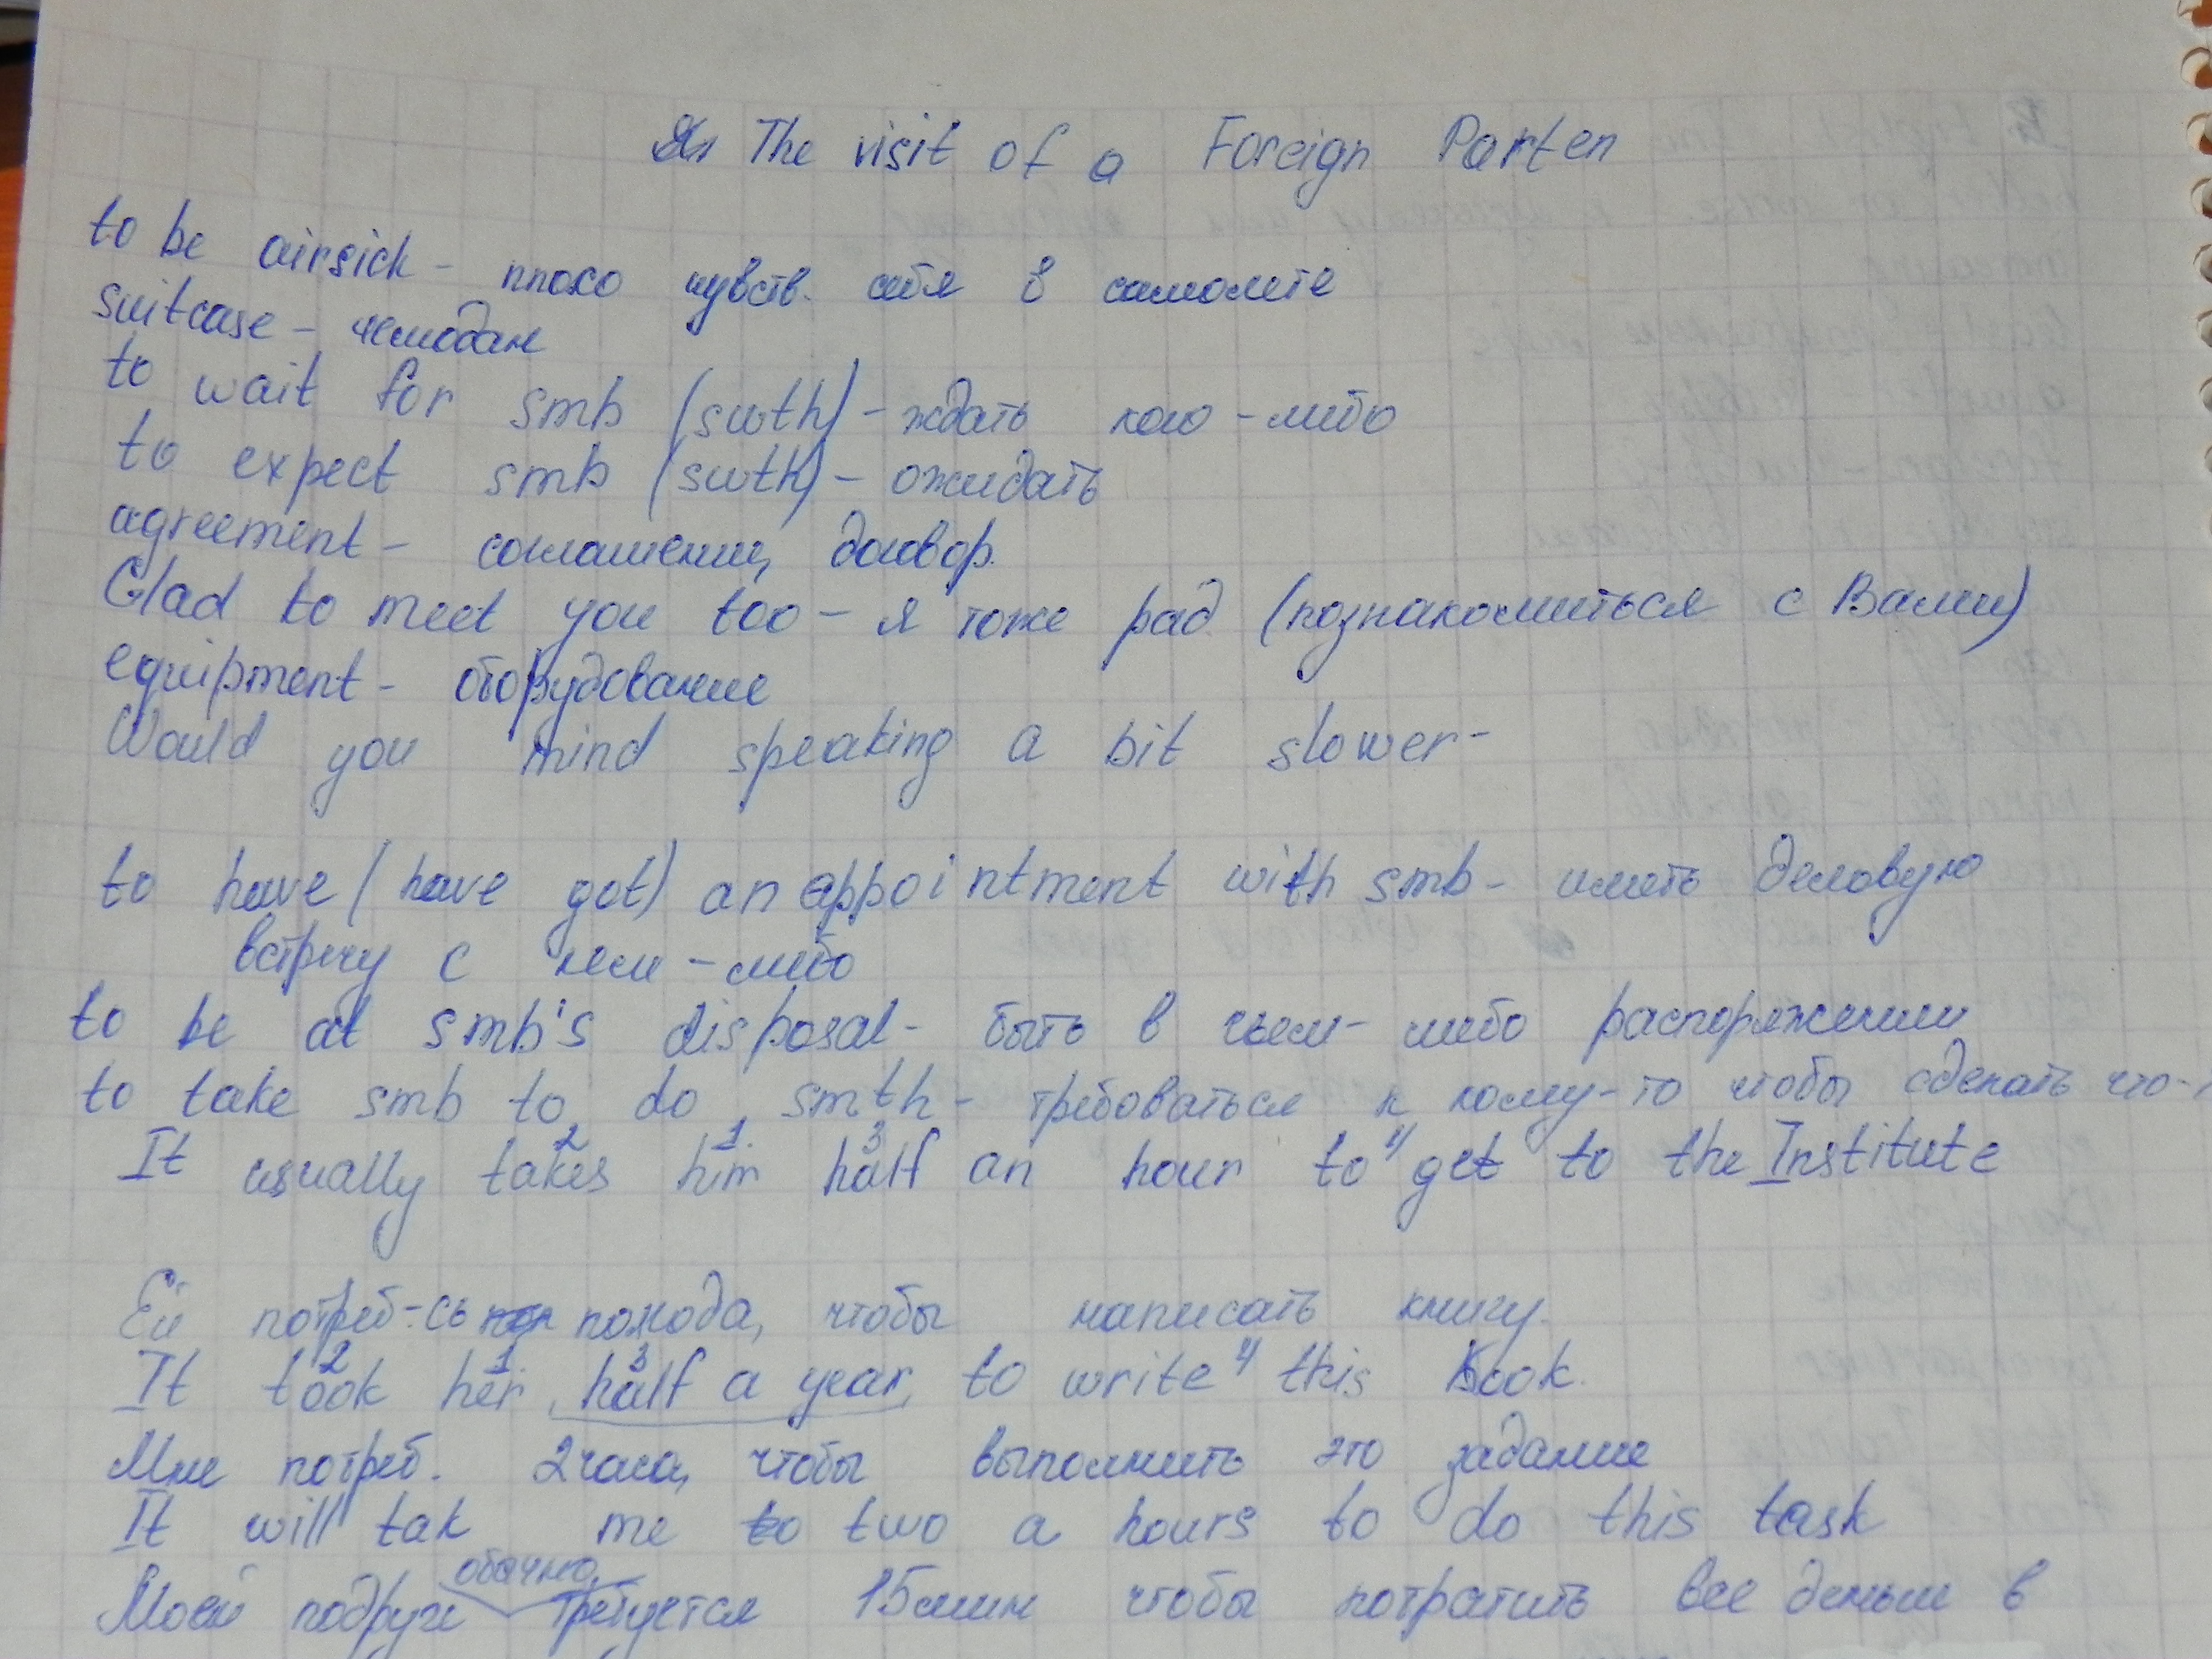 The visit of a Foreign Parten
to be airsick - плохо чувств. себя в самолете
suitcase - чемодан
to wait for smb (smth) - ждать кого-либо
to expect smb (smth) - ожидать
agreement - соглашении, договор.
Glad to meet you too - я тоже рад (познакомиться с Вами)
equipment - оборудование
Would you mind speaking a bit slower -
to have (have got) an appointment with smb - иметь деловую
встречу с кем-либо
to be at smb's disposal - быть в чьем-либо распоряжении
to take smb to do smth - требоваться к кому-то чтобы сделать что-
2 1. 3 4
It usually takes him half an hour to get to the Institute
Ей потреб-сь полгода, чтобы написать книгу.
2 1. 3 4
It took her half a year to write this book.
Мне потреб. 2 часа, чтобы выполнить это задание
It will tak me to two a hours to do this task
обычно
Моей подруге требуется 15 мин чтобы потратить все деньги в